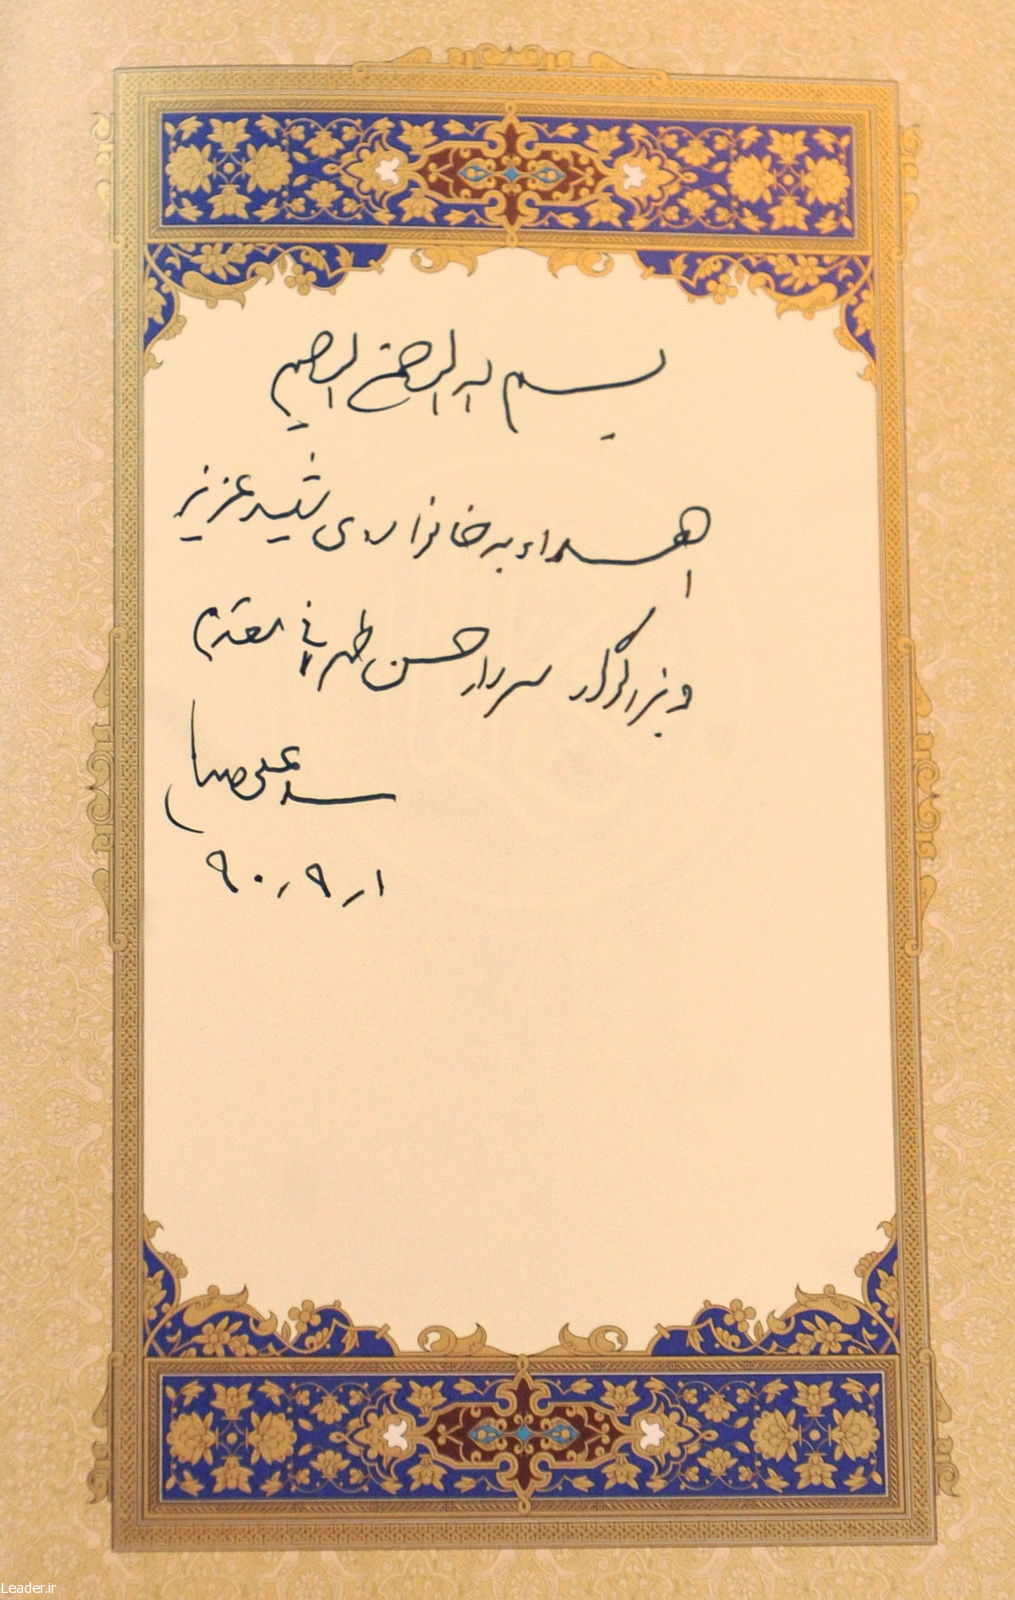 بسم الله الرحمن الرحیم
اهداء به خانواده‌ی شهید عزیز
و بزرگوار سردار حسن طهرانی مقدم
سیدعلی خامنه‌ای
۹۰٫۹٫۱
Leader.ir